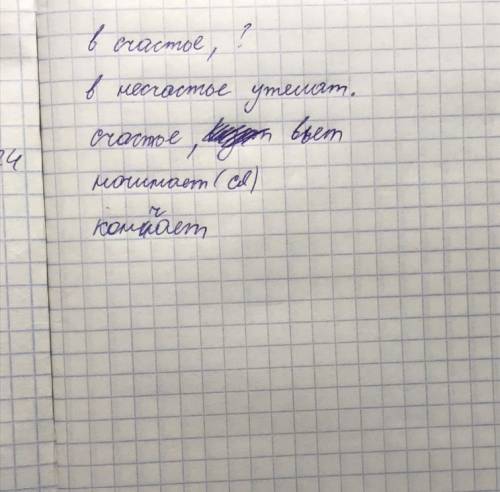 в счастье, ?
в несчастье утешат.
счастье, вьет
начинает(ся)
кончает
24